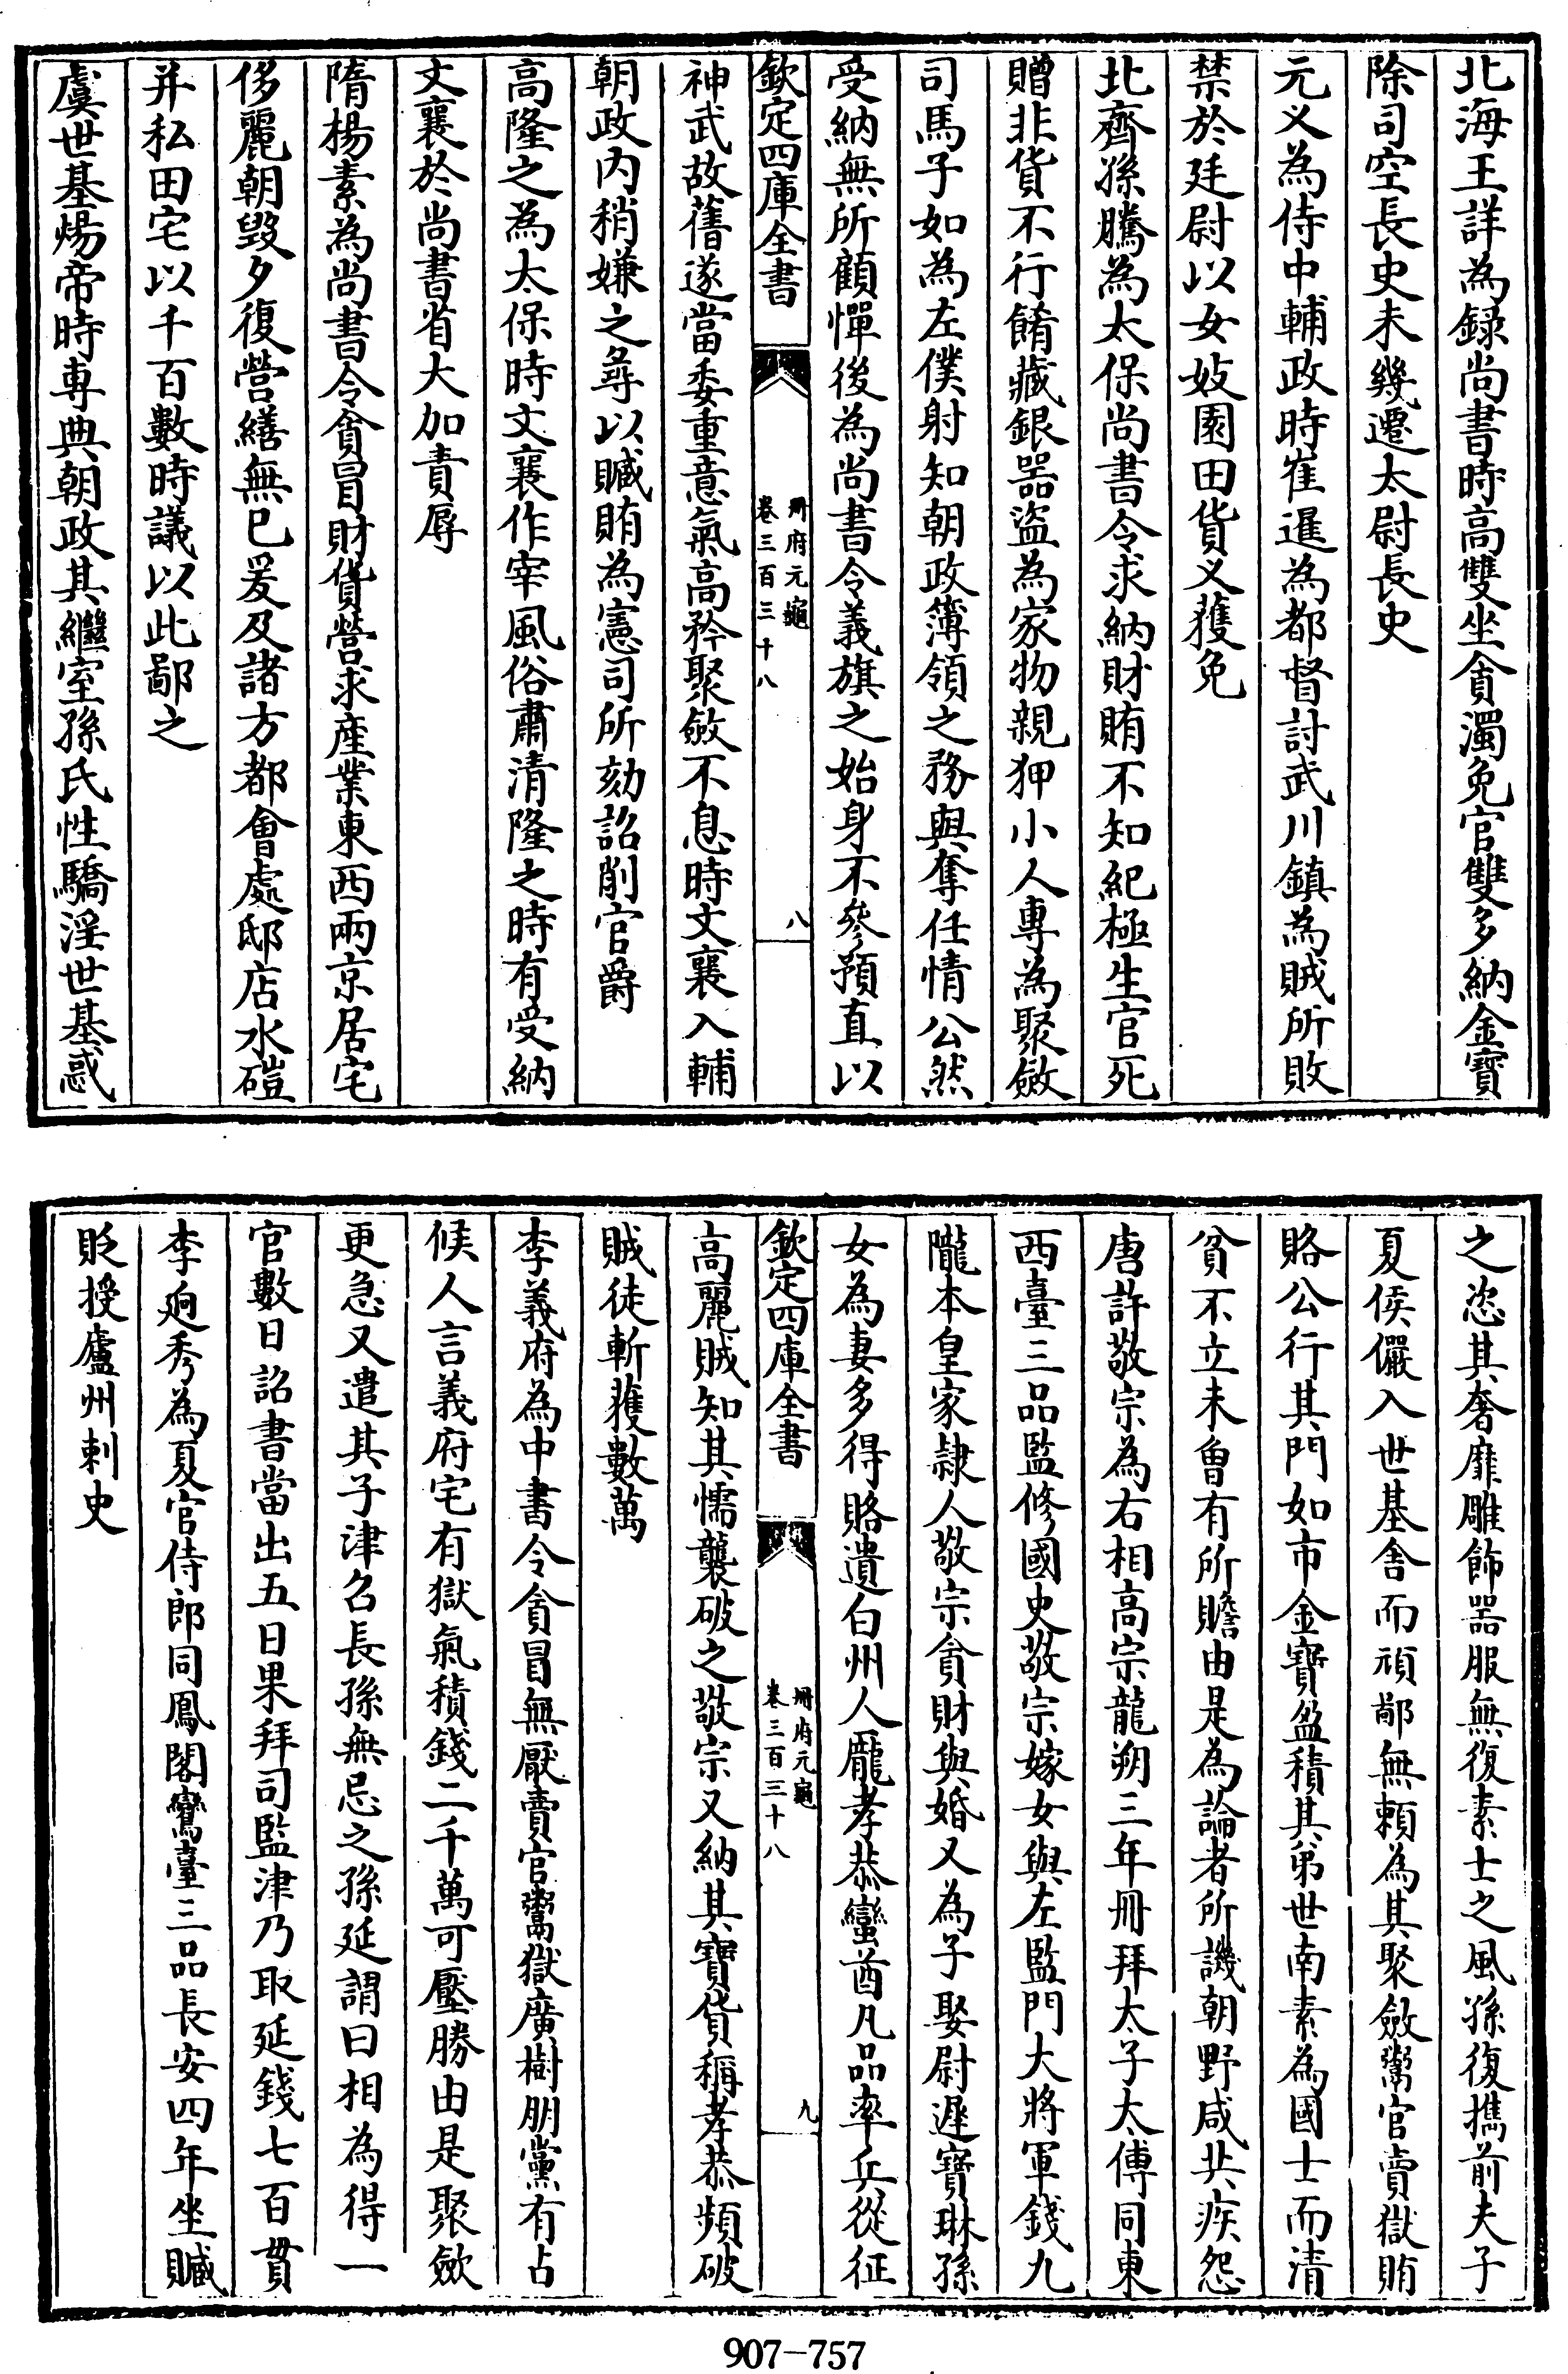 北海王詳為録尚書時高雙坐貪濁免官雙多納金寳
除司空長史未幾遷太尉長史
元义為侍中輔政時崔暹為都督討武川鎮為賊所敗
禁於廷尉以女妓園田貨义獲免
北齊孫騰為太保尚書令求納財賄不知紀極生官死
贈非貨不行餚藏銀器盜為家物親狎小人專為聚斂
司馬子如為左僕射知朝政簿領之務與奪任情公然
受納無所顧憚後為尚書令義旗之始身不參預直以
欽定四庫全書
冊府元龜
卷三百三十八
八
神武故舊遂當委重意氣高矜聚斂不息時文襄入輔
朝政内稍嫌之尋以贓賄為憲司所劾詔削官爵
高隆之為太保時文襄作宰風俗肅清隆之時有受納
文襄於尚書省大加責辱
隋楊素為尚書令貪冒財貨營求産業東西兩京居宅
侈麗朝毀夕復營繕無已爰及諸方都會處邸店水磑
并私田宅以千百數時議以此鄙之
虞世基煬帝時専典朝政其繼室孫氏性驕淫世基惑
之恣其奢靡雕飾器服無復素士之風孫復攜前夫子
夏侯儼入世基舍而頑鄙無頼為其聚斂鬻官賣獄賄
賂公行其門如市金寳盈積其弟世南素為國士而清
貧不立未曾有所贍由是為論者所譏朝野咸共疾怨
唐許敬宗為右相高宗龍朔三年冊拜太子太傅同東
西臺三品監修國史敬宗嫁女與左監門大將軍錢九
隴本皇家隷人敬宗貪財與婚又為子娶尉遲寳琳孫
女為妻多得賂遺白州人龎孝恭蠻酋凡品率兵從征
欽定四庫全書
冊府元龜
卷三百三十八
九
高麗賊知其懦襲破之敬宗又納其寳貨稱孝恭頻破
賊徒斬獲數萬
李義府為中書令貪冒無厭賣官鬻獄廣樹朋黨有占
候人言義府宅有獄氣積錢二千萬可壓勝由是聚斂
更急又遣其子津召長孫無忌之孫延謂曰相為得一
官數日詔書當出五日果拜司監津乃取延錢七百貫
李迥秀為夏官侍郎同鳳閣鸞臺三品長安四年坐贓
貶授廬州刺史
907-757